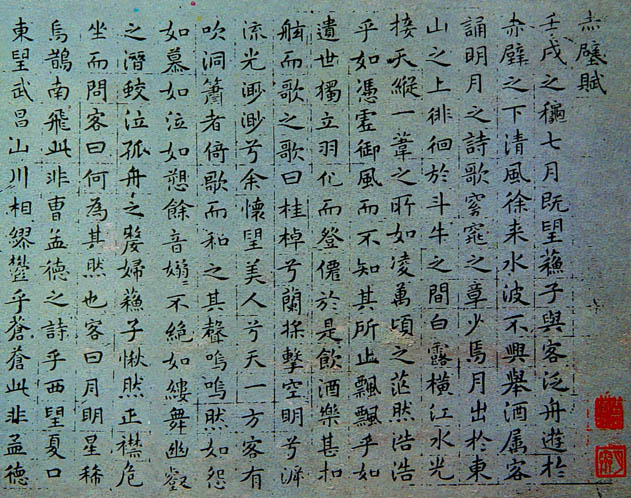 赤壁賦
壬戌之穐七月既望蘓子與客泛舟遊於
赤壁之下清風徐来水波不興舉酒属客
誦明月之詩歌窈窕之章少焉月出於東
山之上徘徊於斗牛之間白露橫江水光
接天縱一葦之所如凌萬頃之茫然浩浩
乎如憑虛御風而不知其所止飄飄乎如
遺世獨立羽化而登僊於是飲酒樂甚扣
舷而歌之歌曰桂棹兮蘭槳擊空明兮泝
流光渺渺兮余懷望美人兮天一方客有
吹洞簫者倚歌而和之其聲嗚嗚然如怨
如慕如泣如愬餘音嫋〻不絶如縷舞幽壑
之潛蛟泣孤舟之嫠婦蘓子愀然正襟危
坐而問客曰何為其然也客曰月明星稀
烏鵲南飛此非曹孟德之詩乎西望夏口
東望武昌山川相繆鬱乎蒼蒼此非孟德